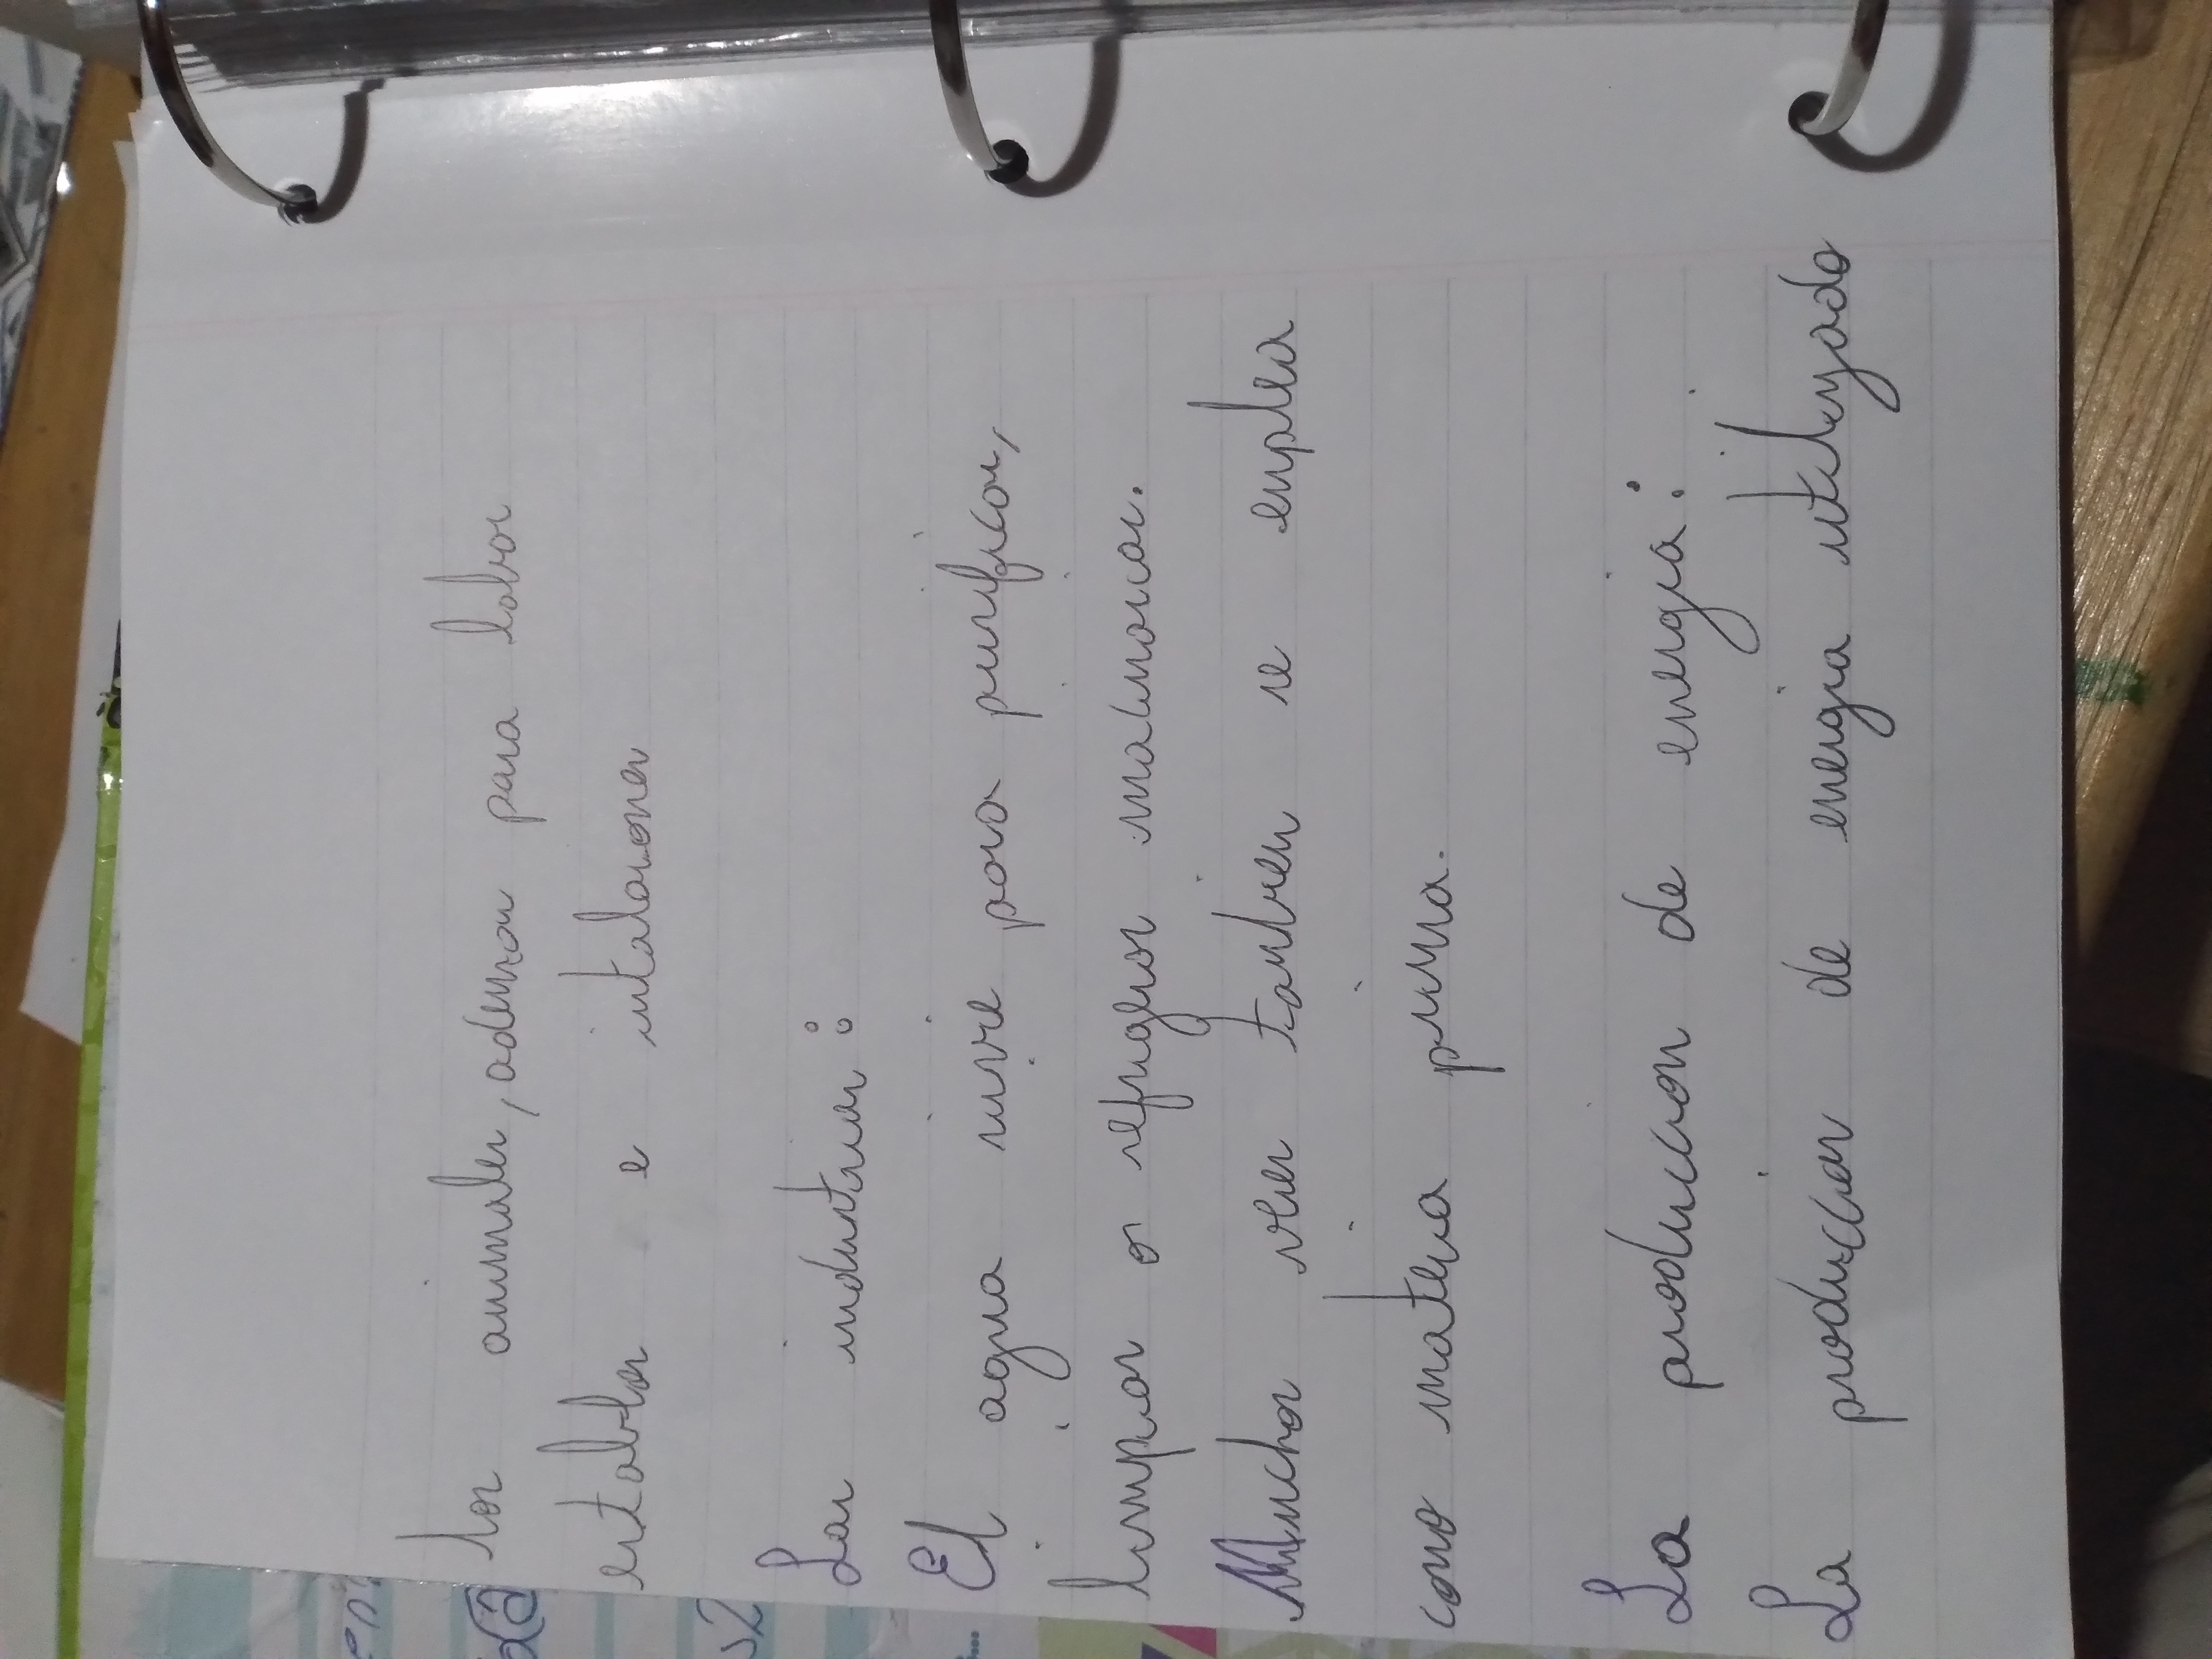 los animales, ademas para labar
establos e instalaciones
Las industrias:
El agua sirve para purificar,
limpiar o refrigerar maquinarias.
Muchas veces tambien se emplea
como materia prima.
La produccion de energia:
La produccion de energia utilizada